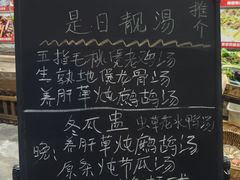 是日靓湯
推介
五指毛桃煲老鸡汤
生熟地煲龙骨汤
养肝草炖鹧鸪汤
冬瓜盅
晚:养肝草炖鹧鸪汤
原条炖节瓜汤